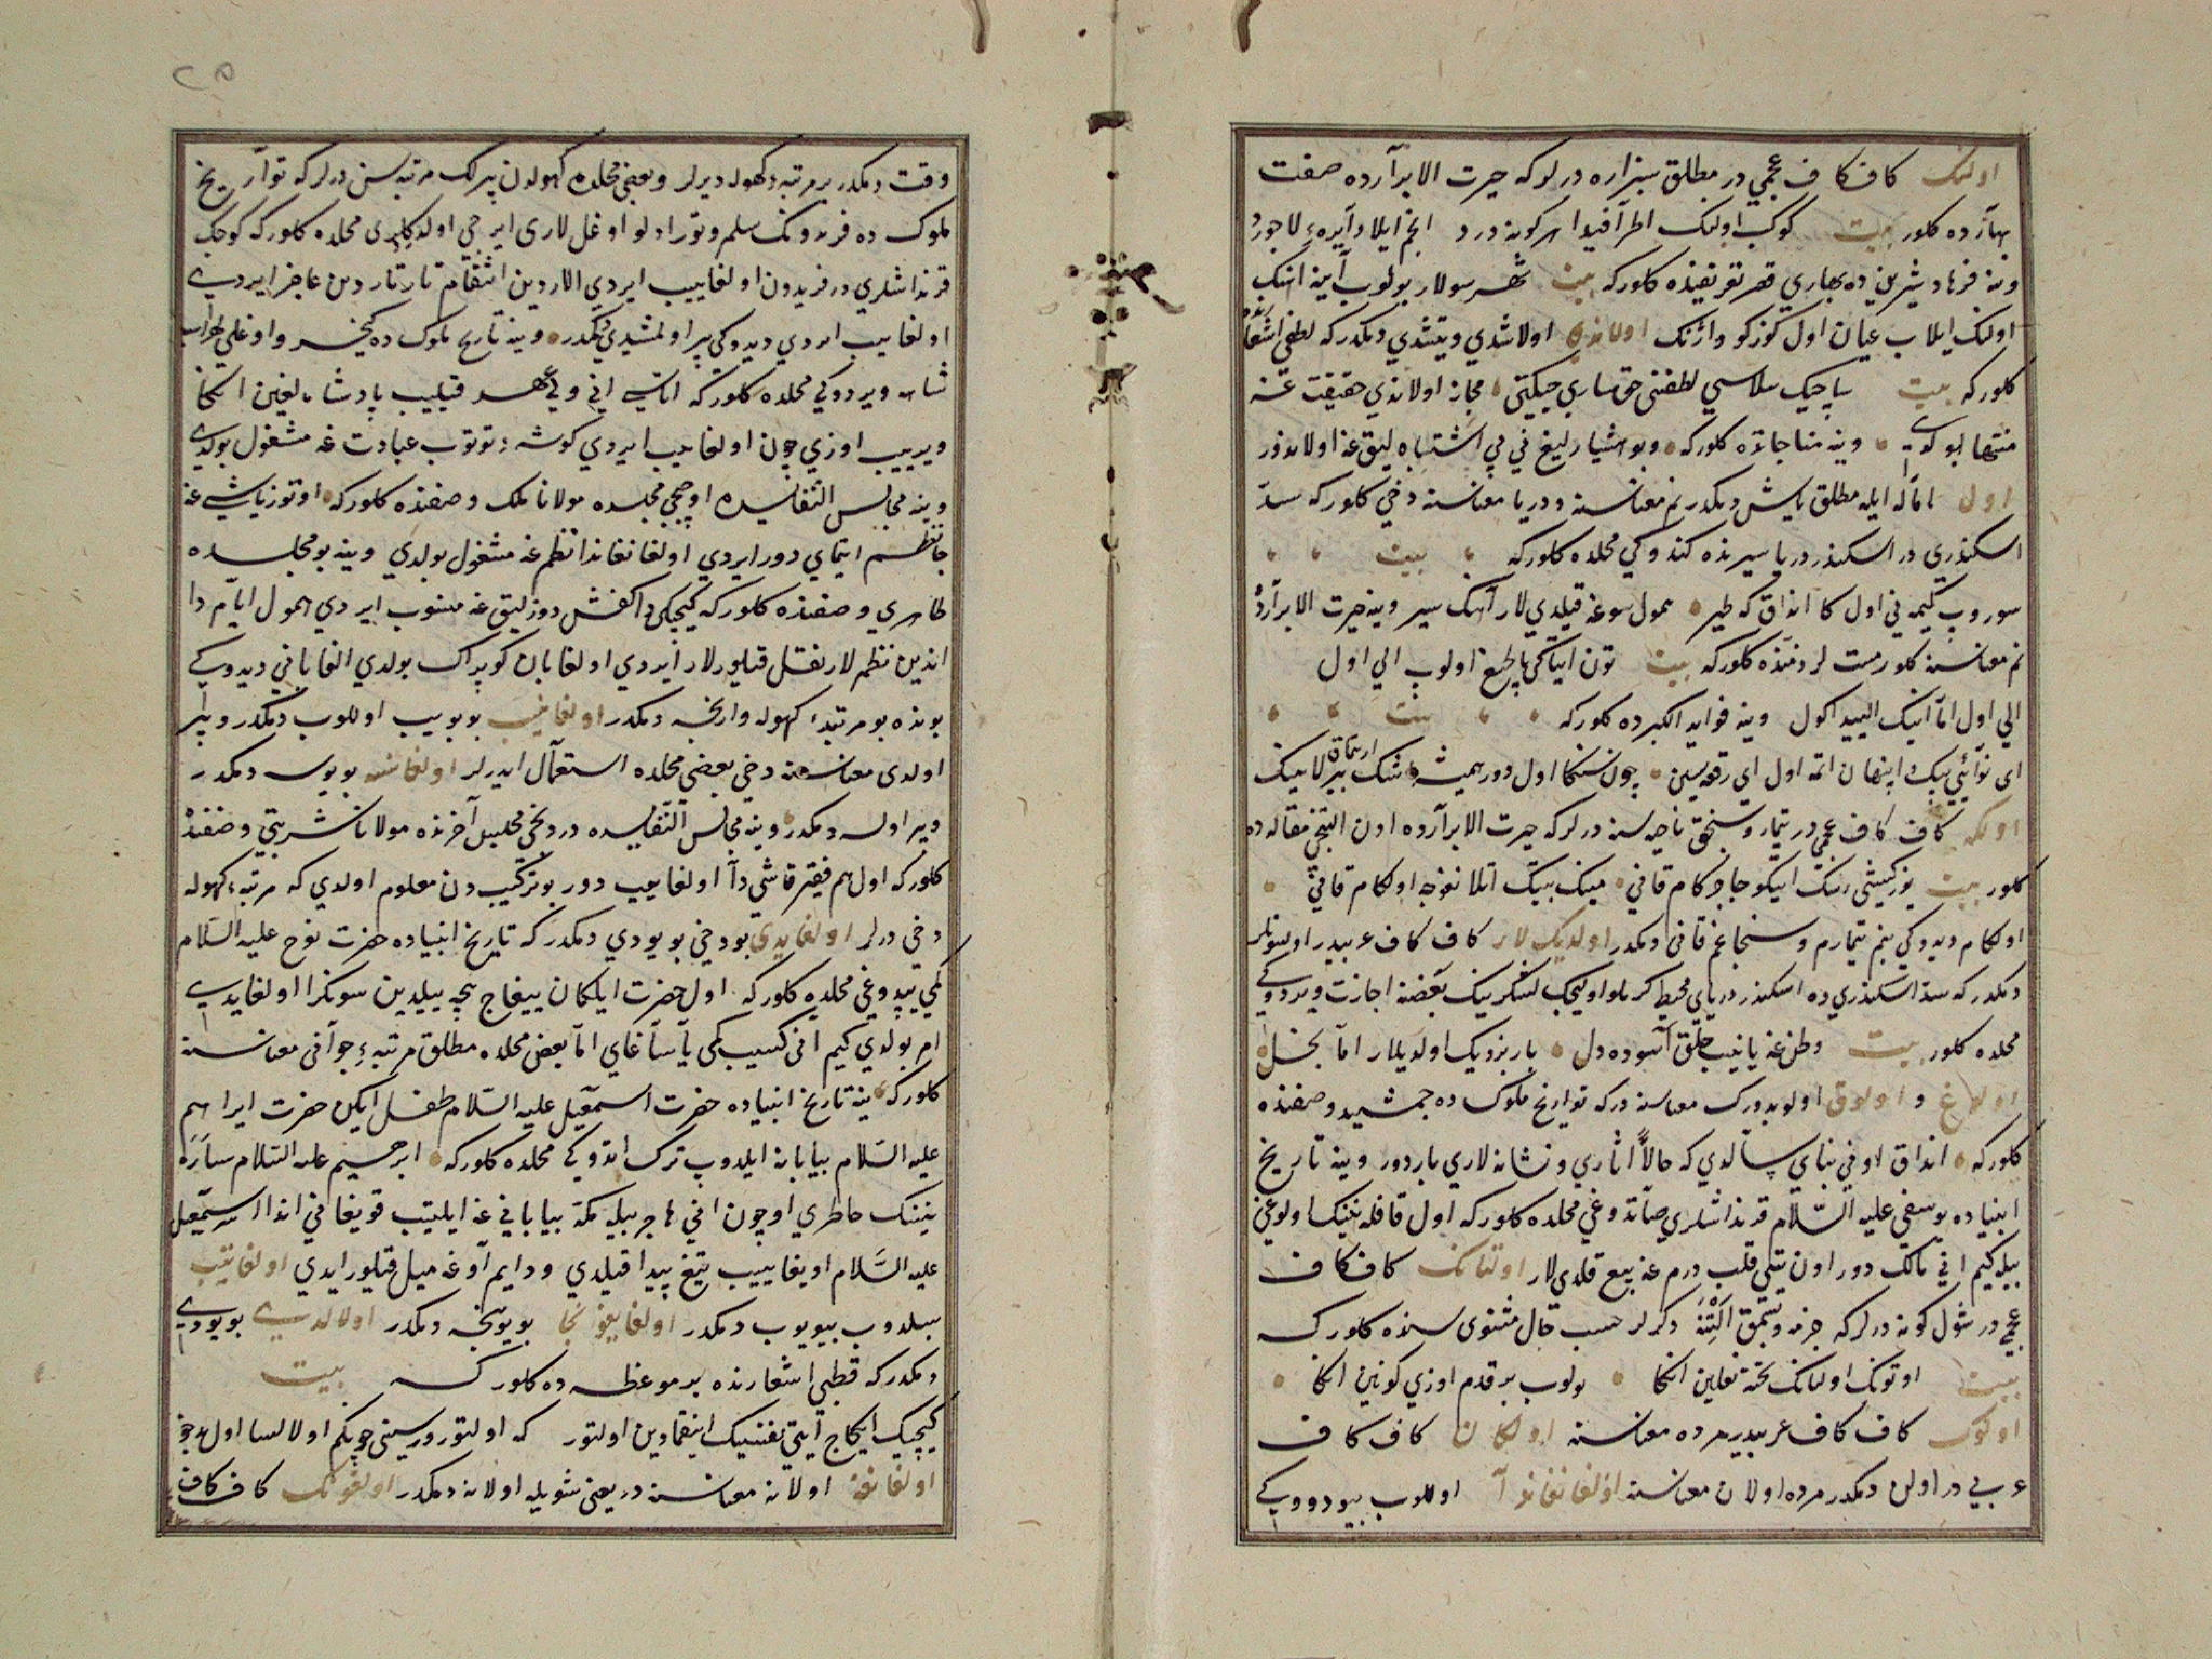 اولنک کاف کاف عجمی در مطلق سبزاره درلر که حیرت الابرآرده صفت
بهارده کلور بیت کوک اولنک اطرآفیدا هر کونه درد انجم ایلا دآیرهٔ لاجورد
وینه فرهاد شیرین ده بهاری قصر تعریفنده کلور که بیت شهر سولار بولوب آینه آهنک
اولنک ایلاب عیان اول کوزکو دا ژنک اولاندی اولاشدی ویتشدی دیمکدر که لطفی اشعارنده
کلور که بیت ساچینک سلاسی لطفنی حق ساری چیکتی مجاز اولاندی حقیقت غه
منتها بولدی وینه مناجاتده کلور که وبو هشیارلیغ نی بی اشتباه لیق غه اولاندور
اول امآله ایله مطلق یاش دیمکدر نم معناسنه ودریا معناسنه دخی کلور که سدّ
اسکندری در اسکندر دریا سیرنده کندوکی محلده کلور که بیت
سوروب کیمه نی اول کا انداق که طیر همول سوغه قیلدی لار آهنک سیر وینه حیرت الابرآرده
نم معناسنه کلور مست لر ذمّنده کلور که بیت تون ایتاکی بالچیغ اولوب الی اول
الی اول امّا انینک الییدا کول وینه فواید الکبرده کلور که بیت
ای نوآئی بیک اپنهان اتمه اول ای رقعه سین چون سنکا اول دور همیشه اشک ارتماق بیرلا نینک
اولکه کاف کاف عجمی در تیمار وسنجق ناحیه سنه درلر که حیرت الابرآرده اون التنجی مقاله ده
کلور بیت یوز کیشی نینک ایتکوجا جرکام قانی مینک بیتک اتلانغوجه اولکام قانی
اولکام دیدوکی بنم تیمارم وسنجاغم قانی دیمکدر اولدیک لار کاف کاف عربیدر اولسونلر
دیمکدر که سدّ اسکندری ده اسکندر دریای محیط کرملو اولیجک لشکرینک بعضنه اجازت ویردوکی
محلده کلور بیت وطن غه یانیب خلق آسوده دل باریزدیک اولدیلار امّا بحل
اولاغ و اولوق اولو بدورک معناسنه در که تواریخ ملوک ده جمشید وصفنده
کلور که انداق اوفی بنای سالدی که حالاً اثاری ونشانه لاری باردور وینه تاریخ
انبیاده یوسف علیه السّلام قرنداشلری صاتدوغی محلده کلور که اول قافله نینک اولوغی
بیله کیم انی مالک دور اون یتی قلب درم غه بیع قلدی لار اولتانک کاف کاف
عجمی در شول کونه درلر که جزمه وبشمق آلتنه دکرلر حسب حال مثنوی سنده کلور که
بیت اوتونک اولتانک تخته نعلین انکا بولوب بر قدم اوزی کونین انکا
اولوک کاف کاف عربیدیر مرده معناسنه اولکان کاف کاف
عربی در اولن دیمکدر مرده اولان معناسنه اولغانغاندآ اولالوب بیودوکی
وقت دیمکدر بر مرتبه دکهوله دیرلر وبعضی محلده کهولدن پیرلک مرتبه سن درلر که توآریخ
ملوک ده فریدونک سلم وتور ادلو اوغل لاری ایرجی اولدکلری محلده کلور که کوچک
قرنداشلری در فریدون اولغاییب ایردی الاردین انتقام تارتاردین عاجز ایردی
اولغاییب ایردی دیدوکی پیر اولمشیدی دیمکدر وینه تاریخ ملوک ده کیخسرو اوغلی لهراسب
شاه ویردوکی محلده کلور که اتاسی انی ولی عهد قیلیب پادشاهلیغین انکا
ویریب اوزی چون اولغاییب ایردی کوشه توتوب عبادت غه مشغول بولدی
وینه مجالس النّفایسده اوچنجی مجلسده مولانا ملک وصفنده کلور که اوتوز یاشی غه
جا نظم ایتمای دور ایردی اولغانغاندا نظم غه مشغول بولدی وینه بو مجلسده
طاهری وصفنده کلور که کیچیکی دا کفش دوزلیق غه منسوب ایردی همول ایّام دا
اندین نظم لار نقل قیلورلار ایردی اولغایان کوپراک بولدی الغایانی دیدوکی
بونده بو مرتبهٔ کهوله وارنجه دیمکدر اولغاییب بویوییب اولولوب دیمکدر وپیر
اولدی معناسنه دخی بعضی محلده استعمآل ایدرلر اولغاسه بویوسه دیمکدر
وپیر اولسه دیمکدر وینه مجالس النّفایسده دردنجی مجلس آخرنده مولانا شربتی وصفنده
کلور که اول هم فقیر قاشی دآ اولغاییب دور بو ترکیب دن معلوم اولدی که مرتبهٔ کهوله
دخی درلر اولغایدی بو دخی بویودی دیمکدر که تاریخ انبیاده حضرت نوح علیه السّلام
کمی یپدوغی محلده کلور که اول حضرت ایلکان ییغاج نیچه ییلدین سونکرا اولغایدی
امر بولدی کیم انی کسیب کمی یآساغای امّا بعض محلده مطلق مرتبهٔ جوآنی معناسنه
کلور که ینه تاریخ انبیاده حضرت اسمعیل علیه السّلام طفل ایکن حضرت ابراهیم
علیه السّلام بیابانه ایلدوب ترک اتدوکی محلده کلور که ابرهیم علیه السّلام سآره
نینک خاطری اوچون انی هاجر بیله مکّه بیابانی غه ایلیتیب قویغانی اندا اسمعیل
علیه السّلام اویغاییب تیغ پیدا قیلدی ودایم آوغه میل قیلور ایدی اولغاتیب
بیلدوب بیویوب دیمکدر اولغایغونجا بویوینجه دیمکدر اولالدی بویودی
دیمکدر که قطبی اشعارنده بر موعظه ده کلور که بیت
کیچیک ایکاج آیتی نفتنیک اینقمادین اولتور که اولتور دورسینی چو بکم اولالسا اول
اولغانه اولانه معناسنه در یعنی شویله اولانه دیمکدر اولغونک کاف کاف